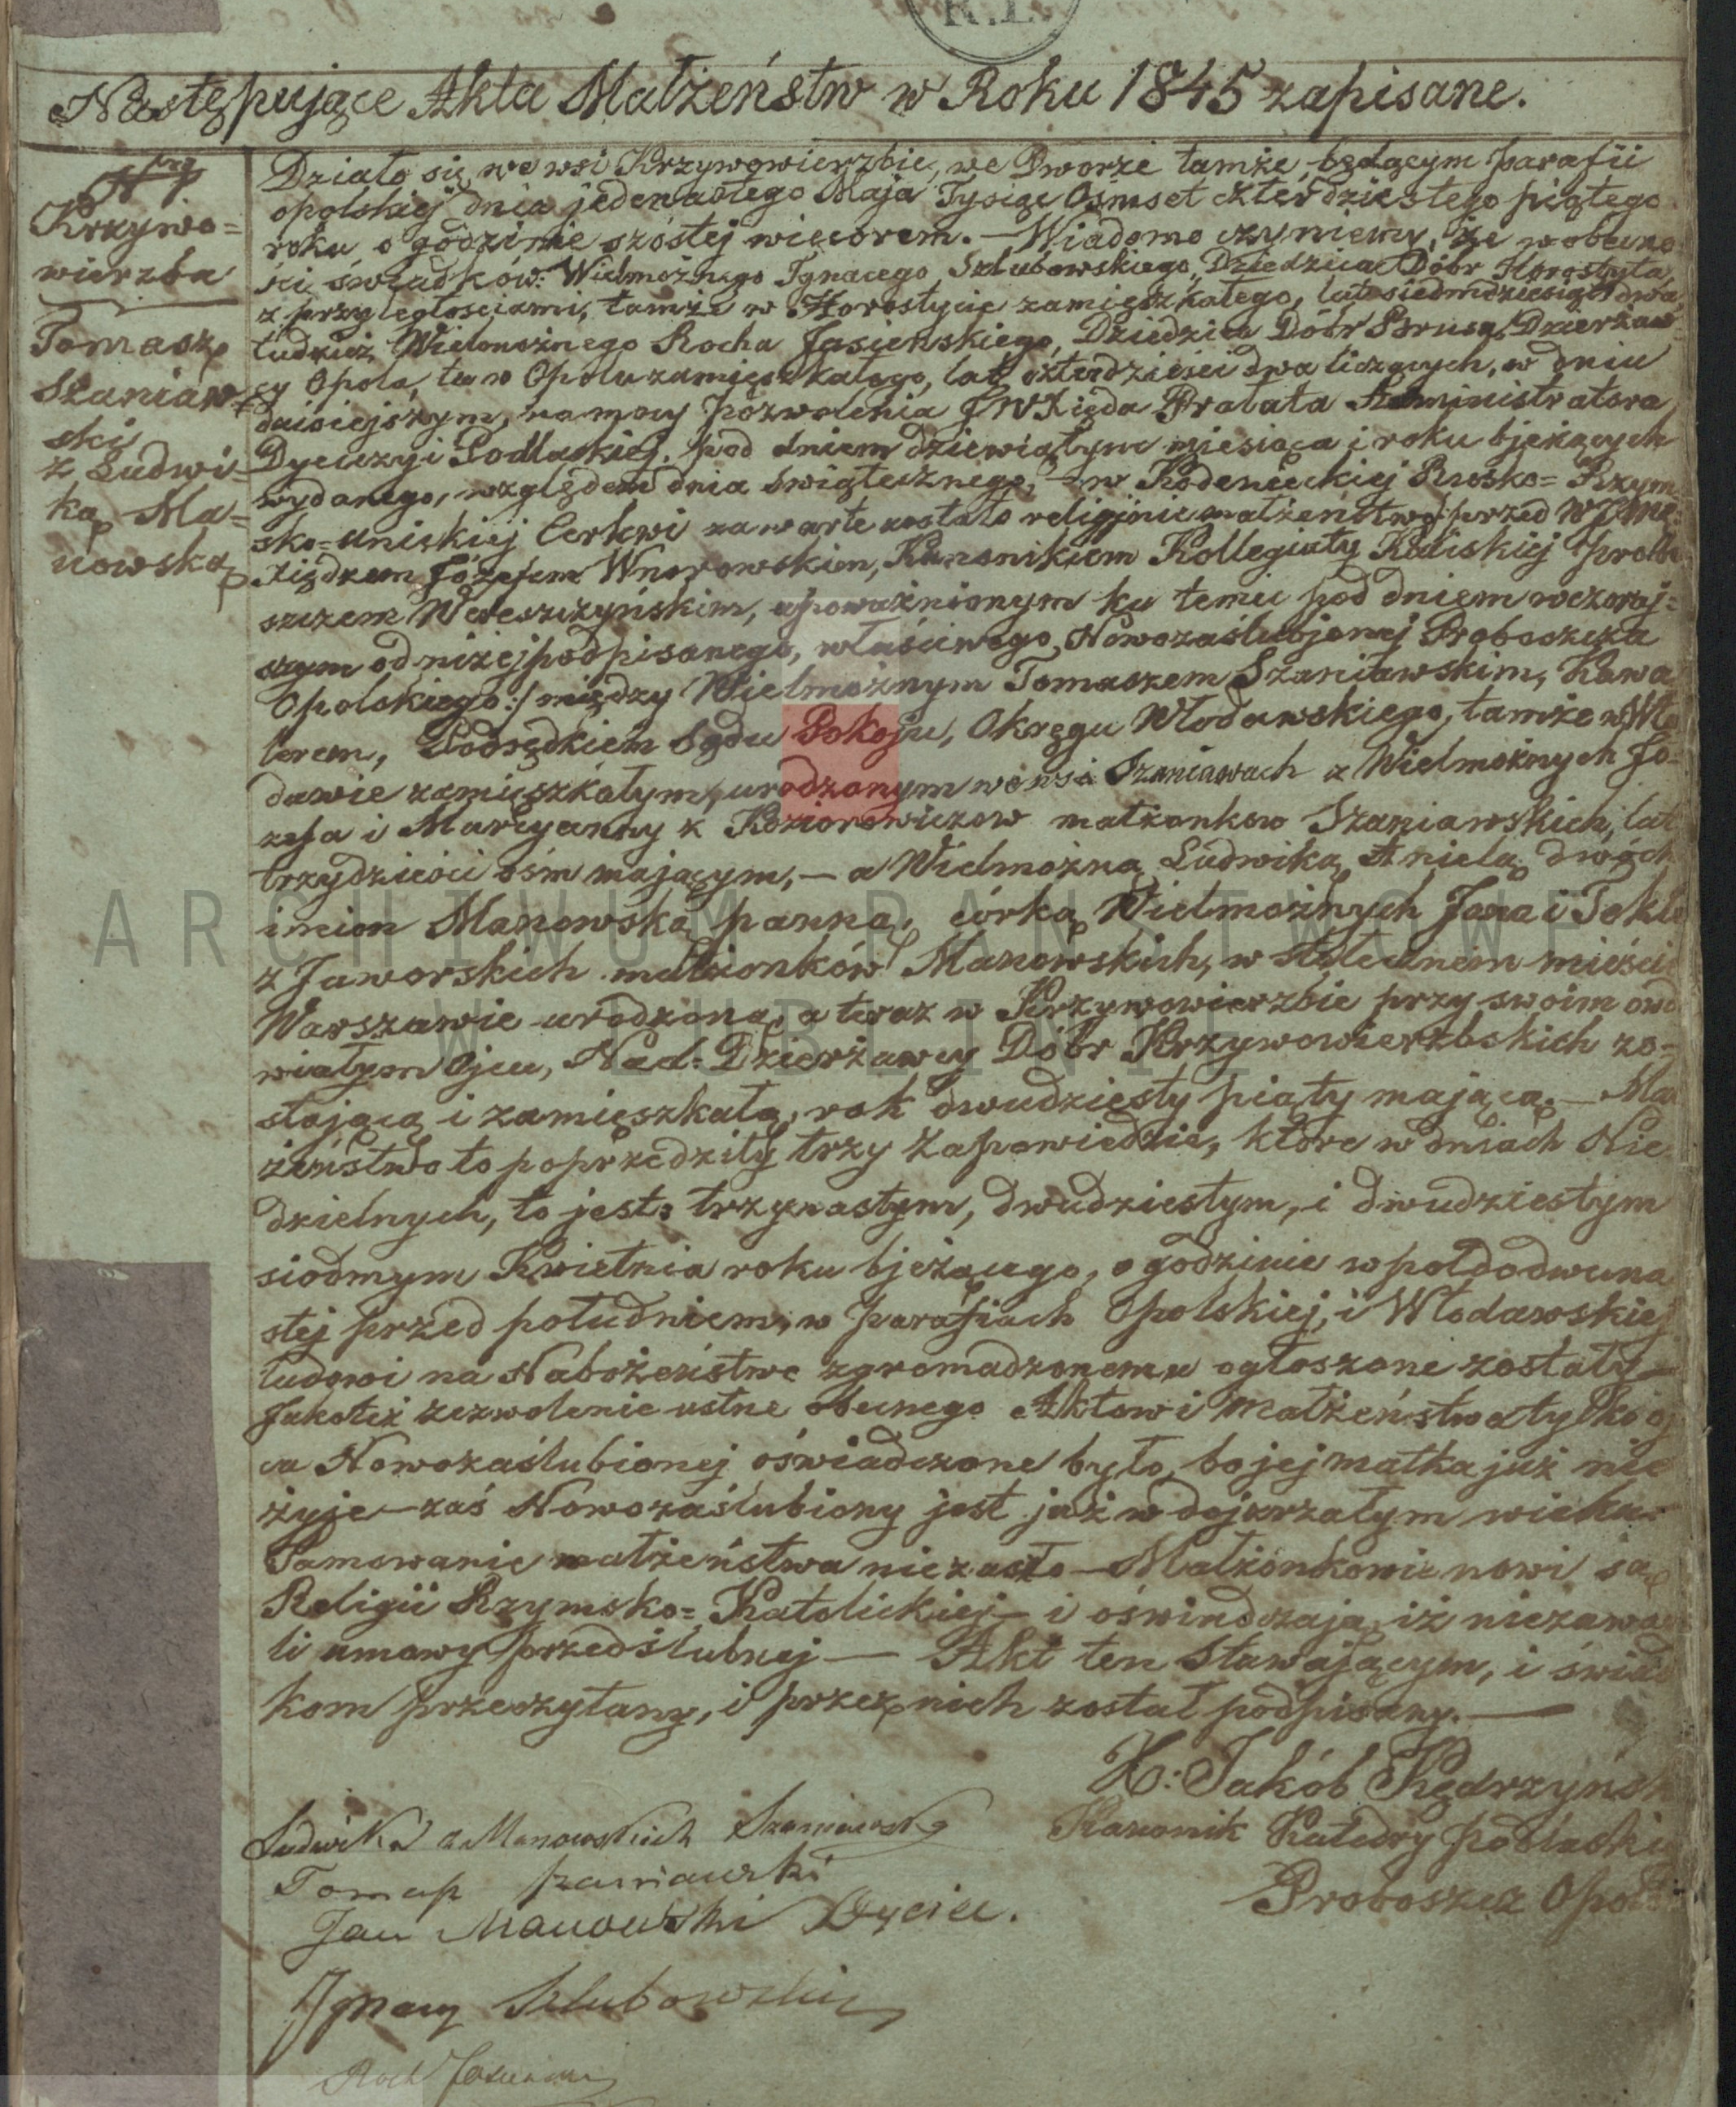 K.L.
Następujące Akta Małżeństw w Roku 1845 zapisane.
Nro 1
Krzywo=
wierzba
Tomasz
Szaniaw=
ski
z Ludwi=
ką Ma=
nowską
Działo się we wsi Krzywowierzbie, we Dworze tamże będącym parafii
opolskiej dnia jedenastego Maja Tysiąc Ośmset czterdziestego piątego
roku o godzinie szóstej wieczorem. — Wiadomo czyniemy, że w obecno
ści świadków: Wielmożnego Ignacego Szlubowskiego, Dziedzica Dóbr Horostyta
z przyległościami, tamże w Horostycie zamięszkałego, lat siedmdziesiąt dwa,
tudzież Wielmożnego Rocha Jasieńskiego, Dziedzica Dóbr Sosnusa, Dzierżaw=
cy Opola, tu w Opolu zamięszkałego, lat czterdzieści dwa liczących, w dniu
dzisiejszym, na mocy pozwolenia JW Xiędza Prałata Administratora
Dyecezyi Podlaskiej, pod dniem dziewiątym miesiąca i roku bjeżących
wydanego, względem dnia świątecznego, — w Kodenieckiej Rusko= Rzym
sko=uniskiej Cerkwi zawarte zostało religijnie małżeństwo przed W Jmć
Xiędzem Józefem Wnorowskim, Kanonikiem Kollegiaty Kaliskiej Probo
szczem Wereszczyńskim, upoważnionym ku temu pod dniem wczoraj=
szym od niżej podpisanego, właściwego Nowozaślubjonej Proboszcza
Opolskiego:/ między Wielmożnym Tomaszem Szaniawskim, Kawa
lerem, Podsędkiem Sądu Pokoju, Okręgu Włodawskiego, tamże w Wło
dawie zamięszkałym, urodzonym we wsi Szaniawach z Wielmożnych Jó=
zefa i Maryanny z Koziorowiczow małżonkow Szaniawskich, lat
trzydzieści ośm mającym, — a Wielmożną Ludwiką Anielą dwóch
imion Manowską panną, córką Wielmożnych Jana i Tekli
z Jaworskich małżonków Manowskich, w Stołecznem mieście
Warszawie urodzoną, a teraz w Krzywowierzbie przy swoim owd
wiałym Ojcu, Nad=Dzierżawcy Dóbr Krzywowierzbskich zo=
stającą i zamięszkałą, rok dwudziesty piąty mającą. — Mał
żeństwo to poprzedziły trzy Zapowiedzie, które w dniach Nie
dzielnych, to jest: trzynastym, dwudziestym, i dwudziestym
siodmym Kwietnia roku bjeżącego, o godzinie wpołdodwuna
stej przed południem, w parafiach Opolskiej, i Włodawskiej
ludowi na Nabożeństwo zgromadzonemu ogłoszone zostały —
Jakoteż zezwolenie ustne obecnego Aktowi Małżeństwa tylko oj
ca Nowozaślubionej oświadczone było, bo jej matka już nie
żyje — zaś Nowozaślubiony jest już w dojrzałym wieku.
Tamowanie małżeństwa nie zaszło — Małżonkowie nowi są
Religii Rzymsko= Katolickiej — i oświadczają, iż niezawar
li umowy przedślubnej — Akt ten Stawającym, i świad
kom przeczytany, i przez nich został podpisany. —
X: Jakób Kędrzyńsk
Kanonik Katedry Podlaskiej
Proboszcz Opol
Ludwika z Manowskich Szaniawska
Tomasz Szaniawski
Jan Manowski Oyciec.
Ignacy Szlubowski
Roch Jasieński
ARCHIWUM PAŃSTWOWE
W LUBLINIE